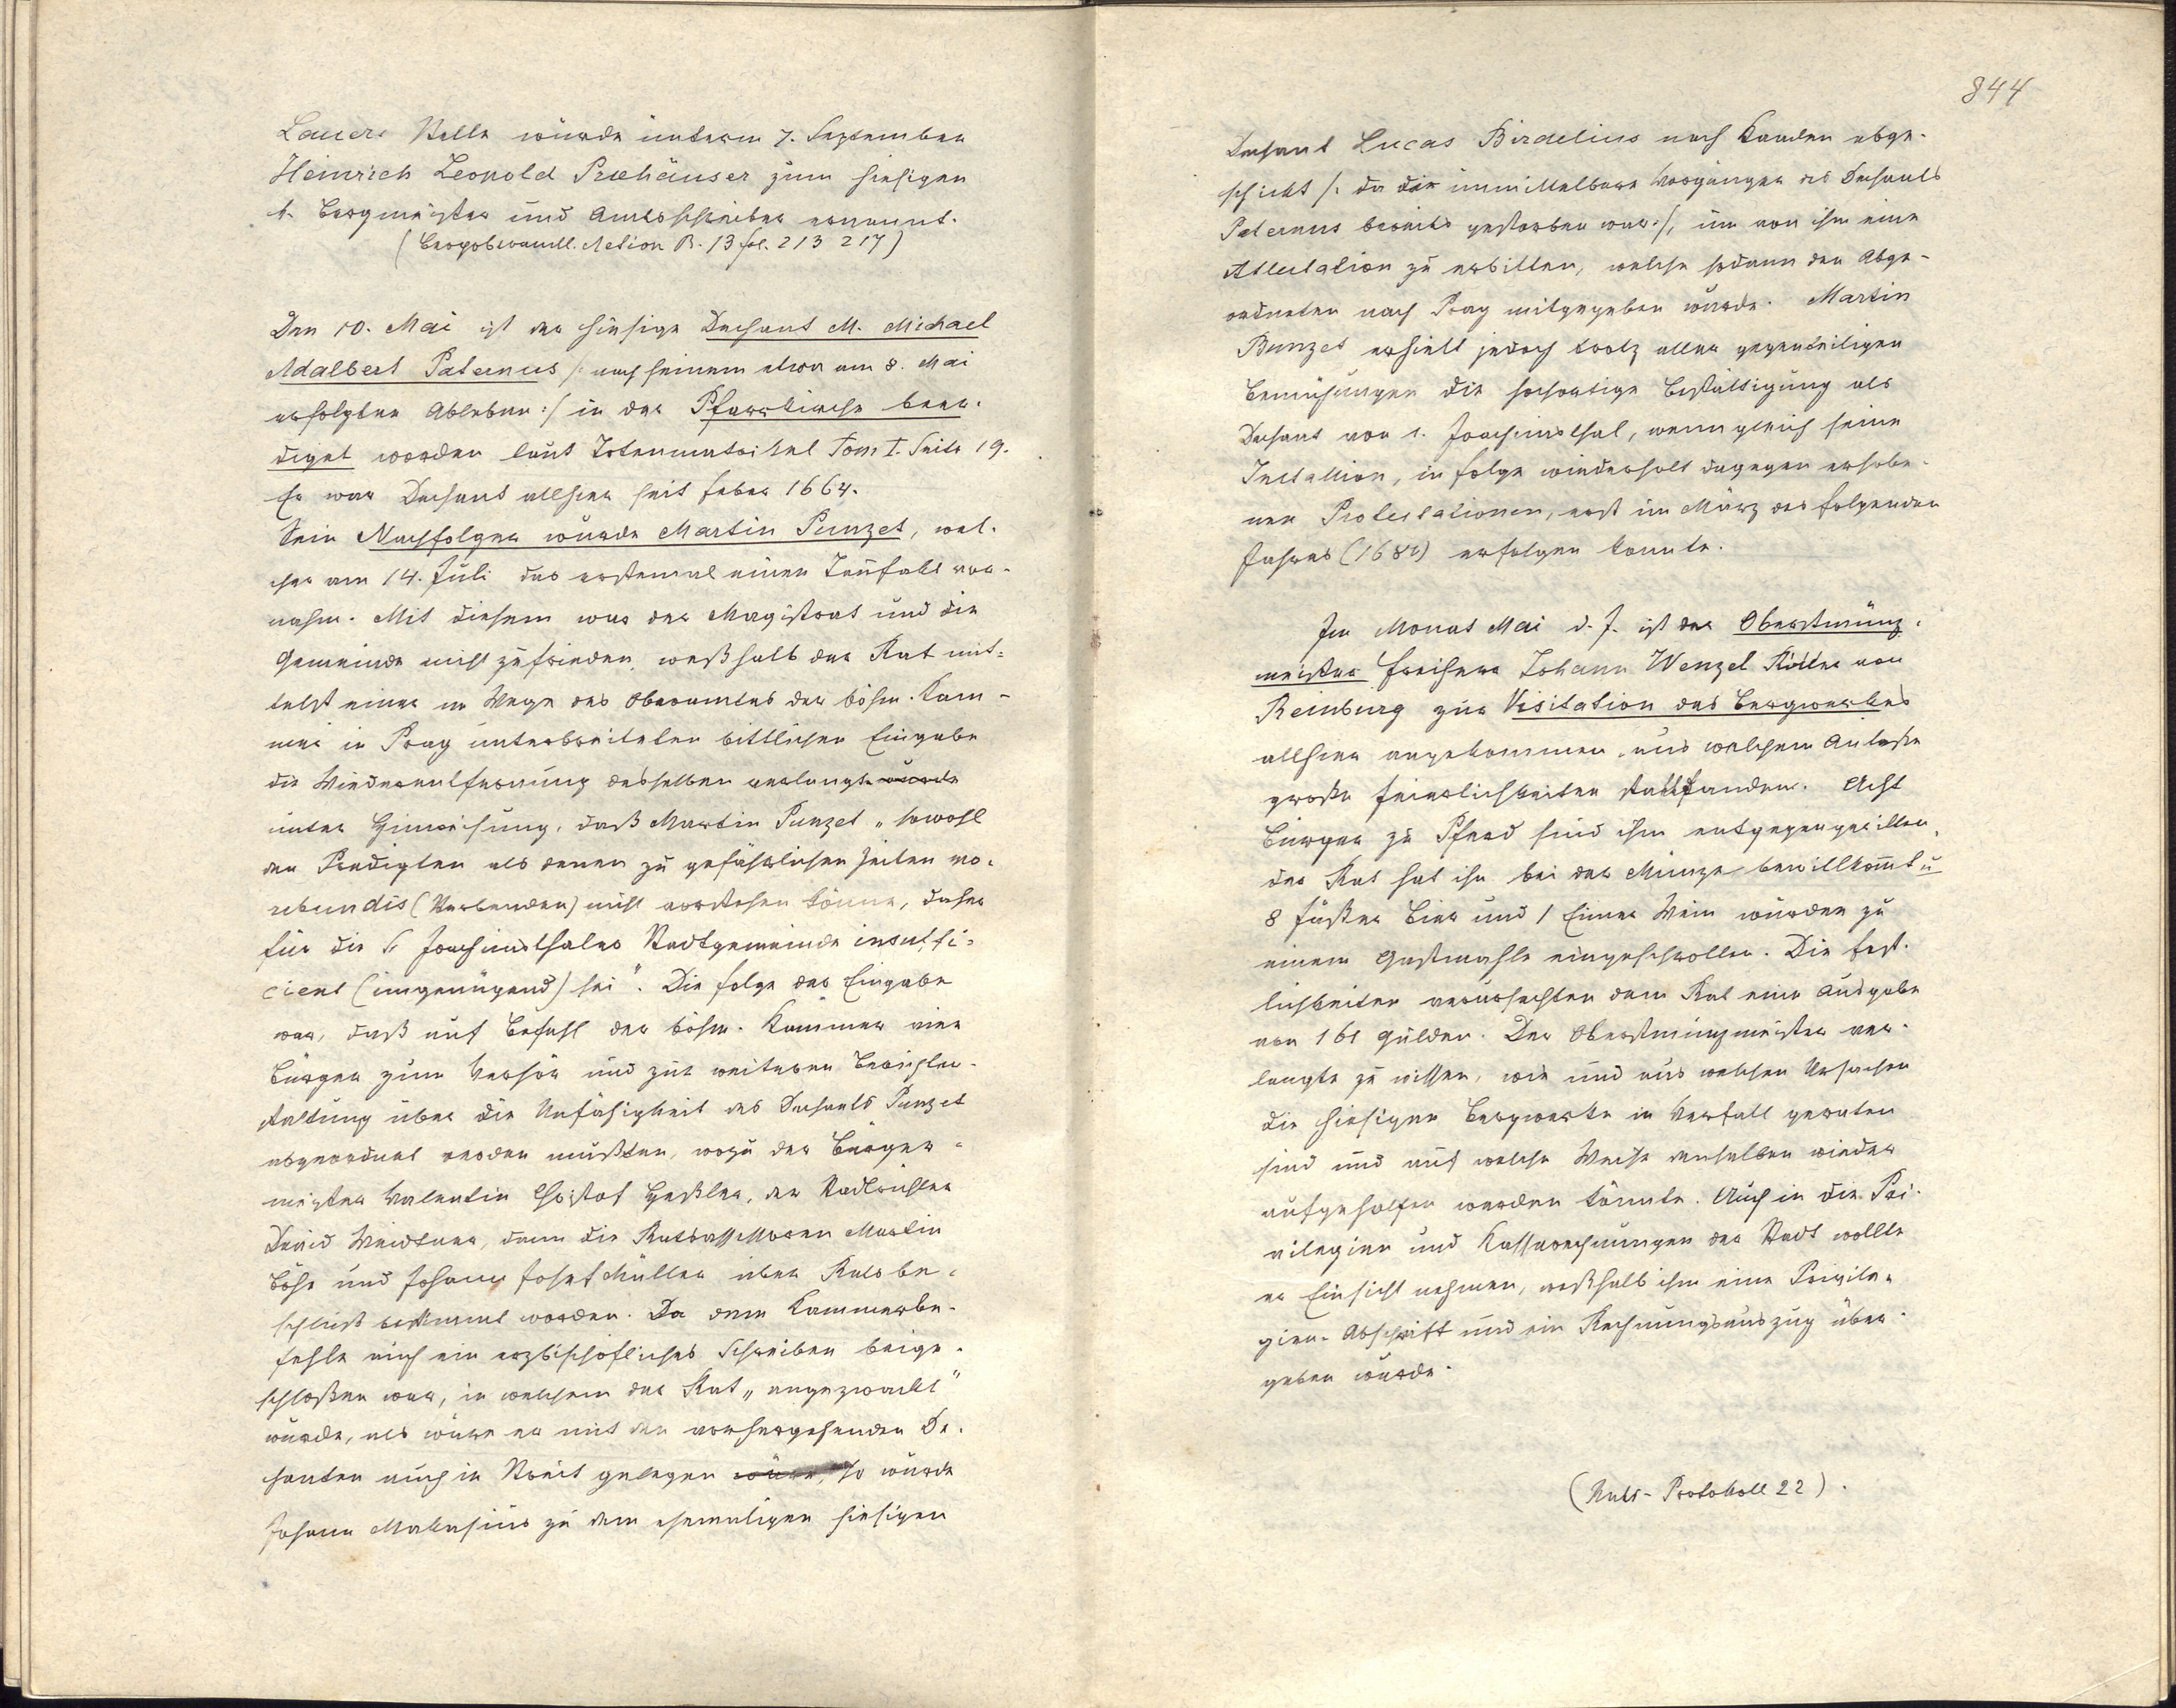 Lauers Stelle wurde unterm 7. September
Heinrich Leopold Prehäuser zum hiesigen
k. Bergmeister und Amtsschreiber ernannt.
(Bergoberamtl. Action B. 13 fol. 213 217)
Den 10. Mai ist der hiesige Dechant M. Michael
Adalbert Paternus /: nach seinem etwa am 8. Mai
erfolgten Ableben :/ in der Pfarrkirche beer-
diget worden laut Totenmatrikel Tom I. Seite 19.
Er war Dechant allhier seit feber 1664.
Sein Nachfolger wurde Martin Punzet, wel-
cher am 14. Juli das erstemal einen Taufakt vor-
nahm. Mit diesem war der Magistrat und die
Gemeinde nicht zufrieden, weßhalb der Rat mit-
telst einer im Wege des Oberamtes der böhm. Kam-
mer in Prag unterbreiteten bittlichen Eingabe
die Wiederentfernung desselben verlangte wurde
unter Hinweisung, daß Martin Punzet „sowohl
den Predigten als denen zu gefährlichen Zeiten mo-
rebundis (Sterbenden) nicht vorstehen könne, daher
für die St Joachimsthaler Stadtgemeinde insuffi-
cient (ungenügend) sei". Die folge der Eingabe
war, daß auf Befehl der böhm. Kammer vier
Bürger zum Verhör und zur weiteren Berichter-
stattung über die Unfähigkeit des Dechants Punzet
abgeordnet werden mußten, wozu der Bürger-
meister Valentin Christof Heßler, der Stadtrichter
David Weidtner, dann die Ratsassessoren Martin
Böhs und Johann Josef Müller über Ratsbe-
schluß bestimmt worden. Da dem Kammerbe-
fehle auch ein erzbischöfliches Schreiben beige-
schloßen war, in welchem der Rat „angezwackt"
wurde, als wäre er mit den vorhergehenden De-
chanten auch in Streit gelegen wäre, so wurde
Johann Mathesius zu dem ehemaligen hiesigen
844
Dechant Lucas Birdelius nach Kaaden abge-
schickt /: da die unmittelbare Vorgänger des Dechants
Paternus bereits gestorben war :/, um von ihm eine
Attestation zu erbitten, welche sodann den Abge-
ordneten nach Prag mitgegeben wurde. Martin
Bunzet erhielt jedoch trotz aller gegenteiligen
Bemühungen die sofortige Bestättigung als
Dechant von S. Joachimsthal, wenngleich seine
Installion, in folge wiederholt dagegen erhobe-
nen Protestationen, erst im März des folgenden
Jahres (1682) erfolgen konnte.
Im Monat Mai d. J. ist der Oberstmünz-
meister freiherr Johann Wenzel Ritter von
Reinburg zur Visitation des Bergwerkes
allhier angekommen, aus welchem Anlaße
große feierlichkeiten stattfanden. Acht
Bürger zu Pferd sind ihm entgegengeritten,
der Rat hat ihn bei der Münze bewillkommt u
8 fäßer Bier und 1 Eimer Wein wurden zu
einem Gastmahle eingeschrotten. Die fest-
lichkeiten verursachten dem Rat eine Ausgabe
von 161 Gulden. Der Oberstmünzmeister ver-
langte zu wissen, wie und aus welchen Ursachen
die hiesigen Bergwerke in Verfall geraten
sind und auf welche Weise denselben wieder
aufgeholfen werden könnte. Auch in die Pri-
vilegien und Kassarechnungen der Stadt wollte
er Einsicht nehmen, weßhalb ihm eine Privile-
gien-Abschrift und ein Rechnungsauszug über-
geben wurde.
(Rats-Protokoll 22).